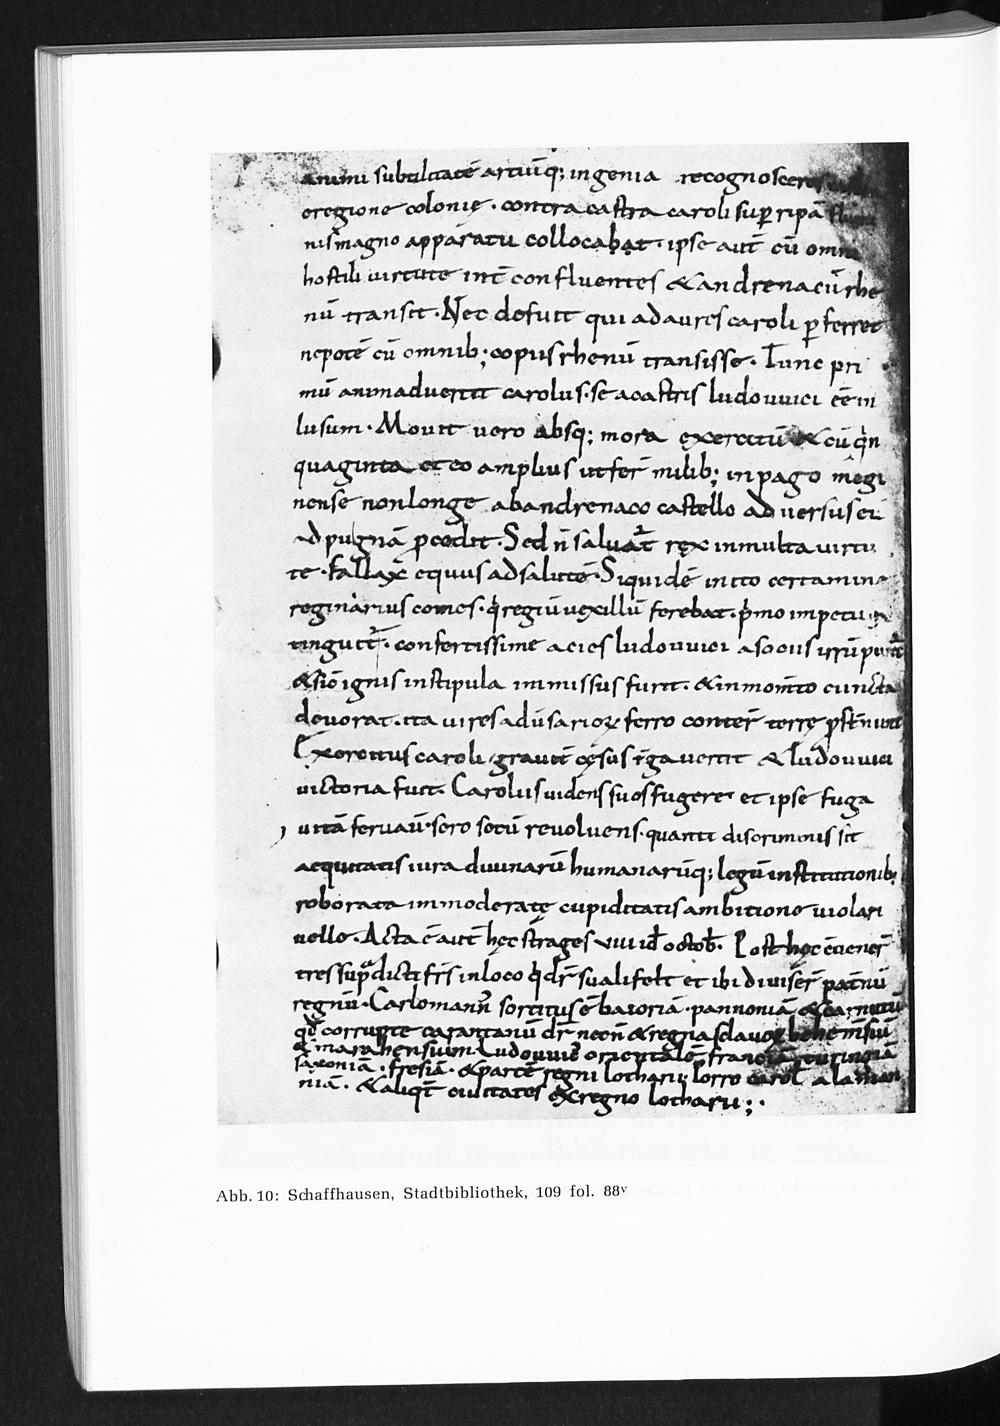 animi subtilitatē artiūq; ingenia recognosceret
eregione colonię · contra castra caroli sup̄ ripā
nis magno apparatu collocabat · ipse aut̄ cū omni
hostili uirtute int̄ confluentes & andrenacū rhe
nū transit · Nec defuit qui ad aures caroli p̄ferret
nepotē cū omnib; copiis rhenū transisse · Tunc pri
mū animaduertit carolus · se a castris ludouuici eē in
lusum · Mouit uero absq; mora exercitū & cū qn
quaginta et eo amplius ut fer̄ milib; in pago megi
nense non longe ab andrenaco castello aduersus eū
ad pugnā p̄cedit · Sed n̄ saluat̄ rex in multa uirtu
te · Fallax equus ad salutē · Siquidē in ito certamine
reginarius comes · q̄ regiū uexillū ferebat · p̄mo impetu
tinguit̄ · confertissime acies ludouuici a sociis irrūpunt̄
& sic ignis in stipula immissus furit · & in momto cuncta
deuorat · ita uires adusarioꝝ ferro conter̄ terrę p̄st̄nunt
Exercitus caroli grauit̄ cęsus t̄ga uertit & ludouuici
uictoria fuit. Carolus uidens suos fugere et ipse fuga
uitā seruau · sero secū reuoluens · quanti discriminis sit
aequitatis iura diuinarū humanarūq; legū institutionib;
roborata immoderatę cupiditatis ambitione uiolari
uelle · Acta ē aut̄ hęc strages viii id̄ octob̄ · Post hęc cōuener̄
tres sup̄dicti fr̄s in loco q̄ dr̄ sualifelt et ibi diuiser̄ patnū
regnū · Carlomann̄ sortitus ē baioriā · pannoniā & carnutū
qđ corrupte carantanū dr̄ necn̄ & regna sclauoꝝ behemsiū
& marahensium Ludouuic̄ orientalē franciā turingiā
saxoniā · fresiā · & partē regni lotharii; Porro carol̄ alaman
niā · & aliqt̄ ciuitates ex regno lotharii; ·
Abb. 10: Schaffhausen, Stadtbibliothek, 109 fol. 88v